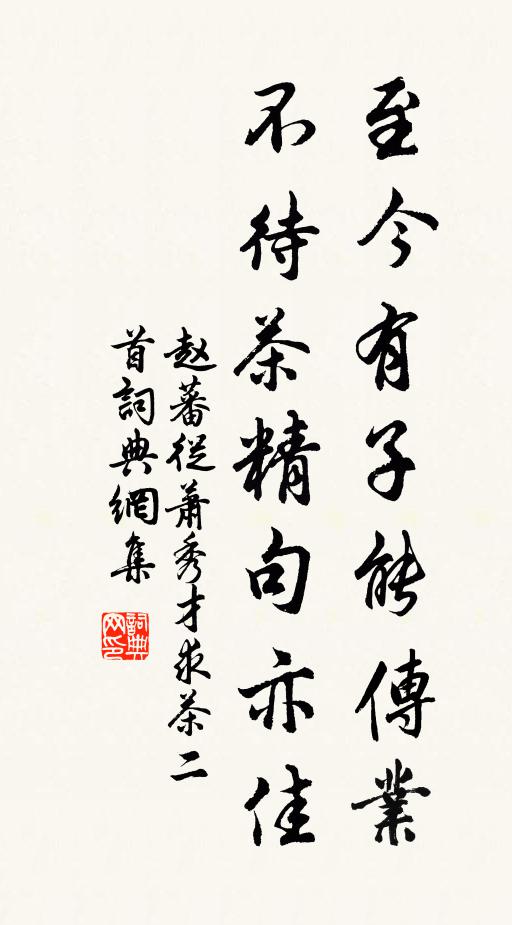 至今有子能傳業
不待茶精句亦佳
赵蕃從蕭秀才求茶二
首詞典網集
詞典
网印